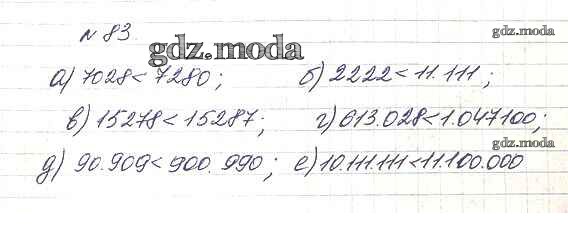 № 83.
gdz.moda
gdz.moda
а) 7028 < 7280; б) 2222 < 11.111;
в) 15278 < 15287; г) 613.028 < 1.047100;
gdz.moda
д) 90.909 < 900.990; е) 10.111.111 < 11.100.000
gdz.moda